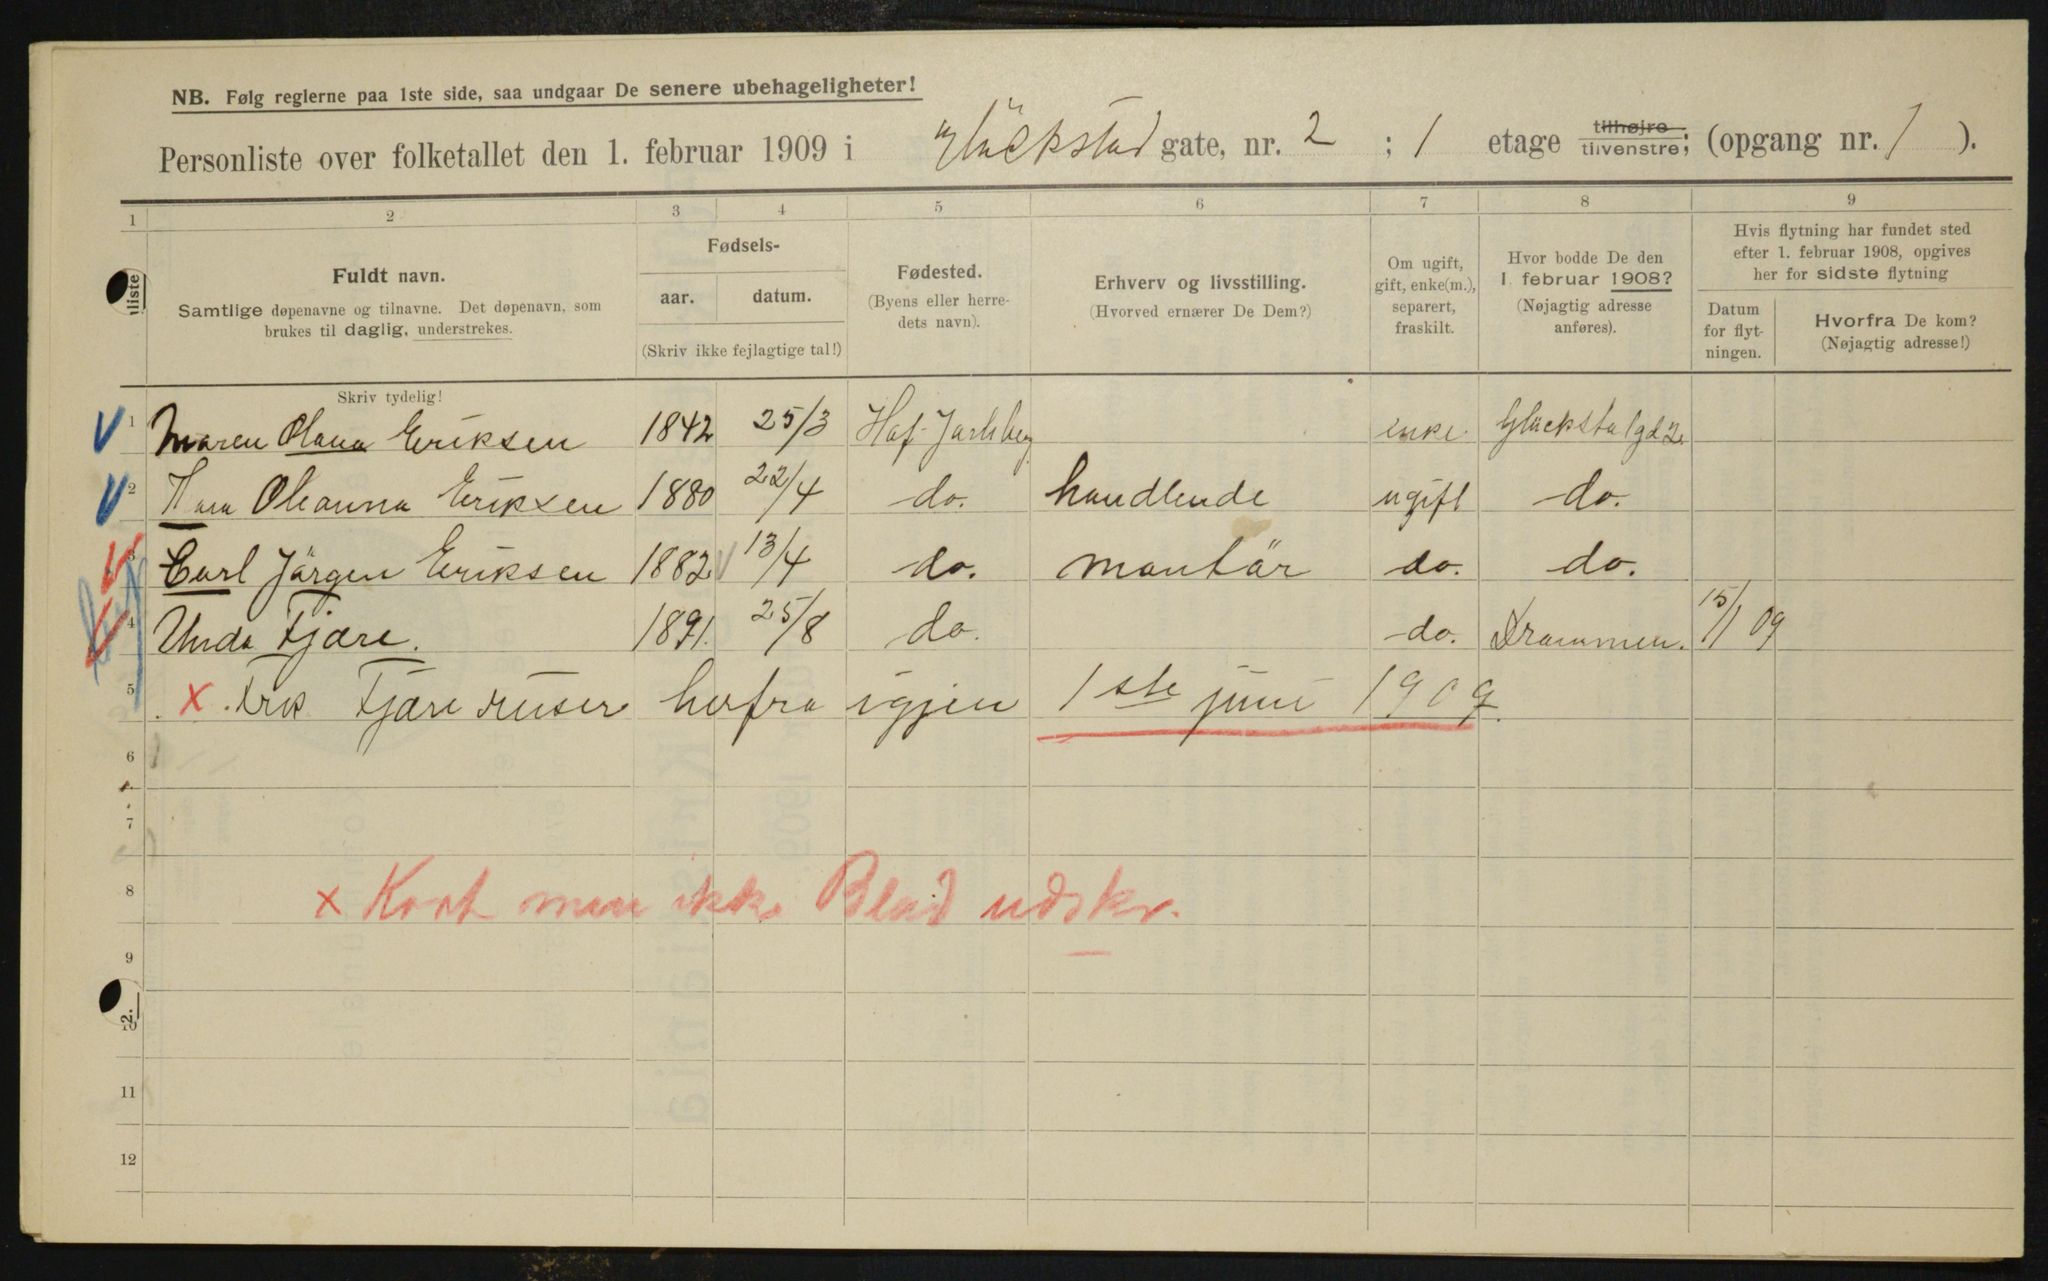 NB. Følg reglerne paa 1ste side, saa undgaar De senere ubehageligheter!
Personliste over folketallet den 1. februar 1909 i Glückstad gate, nr. 2 ; 1 etage tilhøjre tilvenstre; (opgang nr. 1 ).
1 2 3 4 5 6 7 8 9
liste
Fuldt navn.
Samtlige døpenavne og tilnavne. Det døpenavn, som
brukes til daglig, understrekes.
Fødsels-
aar. datum.
(Skriv ikke fejlagtige tal!)
Fødested.
(Byens eller herre-
dets navn).
Erhverv og livsstilling.
(Hvorved ernærer De Dem?)
Om ugift,
gift, enke(m.),
separert,
fraskilt.
Hvor bodde De den
1. februar 1908?
(Nøjagtig adresse
anføres).
Hvis flytning har fundet sted
efter 1. februar 1908, opgives
her for sidste flytning
Datum
for flyt-
ningen.
Hvorfra De kom?
(Nøjagtig adresse!)
Skriv tydelig!
1 Maren Olana Eriksen 1842 25/3 Hof. Jarlsberg enke. Glückstadgd 2.
2 Oleanna Eriksen 1880 22/4 do. handlende ugift do.
3 Carl Jörgen Eriksen 1882 13/4 do. montör do. do.
4 Fjære. 1891. 25/8 do. do. Drammen. 15/1 09
5 x. Frk Fjære reiser herfra igjen 1ste juni 1909.
6
7
8 x Kort men ikke Blad udskr.
9
2.
10
11
12